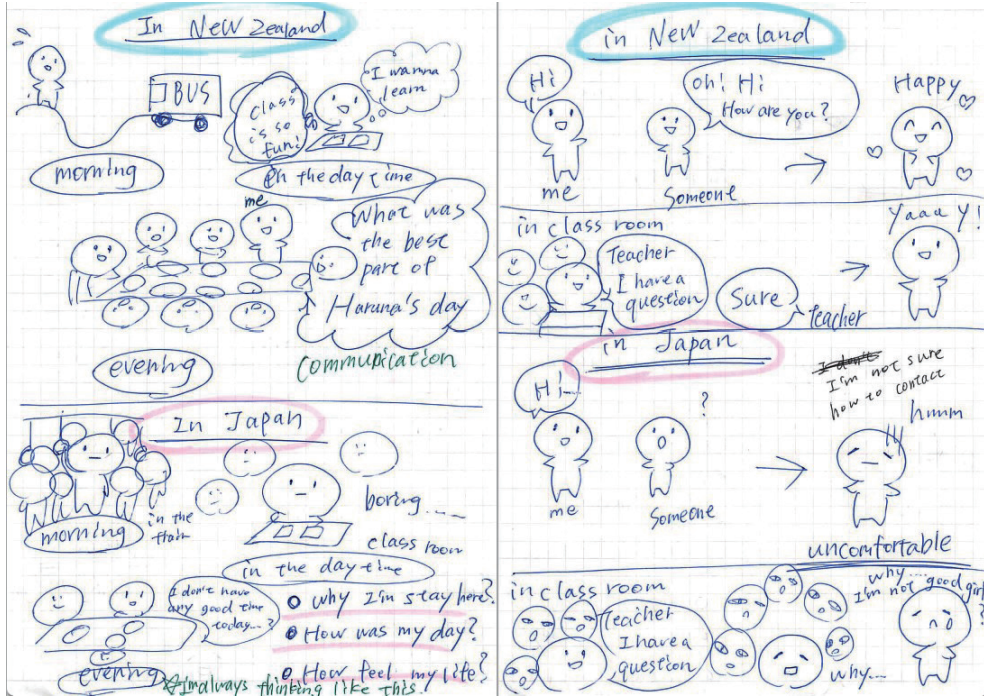 In New Zealand
BUS
class
is so
fun!
I wanna
learn
morning
in the day time
me
What was
the best
part of
Haruna's day
evening
communication
In Japan
morning
in the
train
boring....
class room
in the day time
I don't have
any good time
today...?
why I'm stay here?
How was my day?
How feel my life?
evening
I'm always thinking like this.
in New Zealand
Hi
oh! Hi
How are you?
Happy
me
Someone
in class room
Teacher
I have a
question
Sure
teacher
Yaaay!
in Japan
Hi...
?
I don't
I'm not sure
how to contact
hmm
me
Someone
uncomfortable
in class room
Teacher
I have a
question
why...
I'm not good girl
?
why...